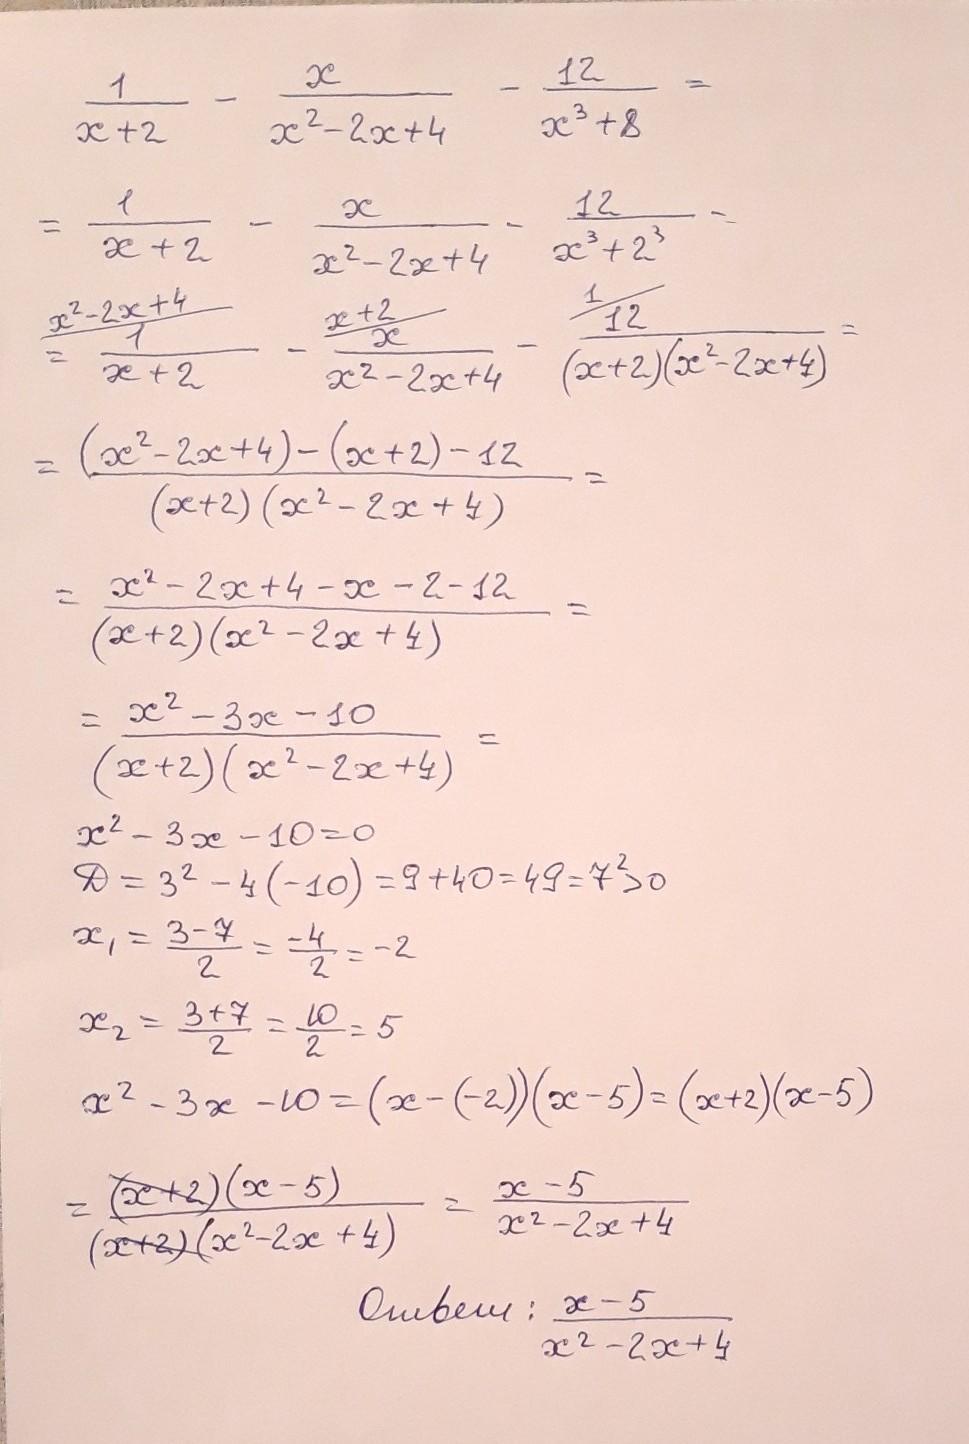 1/(x+2) - x/(x²-2x+4) - 12/(x³+8) =
= 1/(x+2) - x/(x²-2x+4) - 12/(x³+2³) =
= x²-2x+4/ 1/(x+2) - x+2/ x/(x²-2x+4) - 1/ 12/((x+2)(x²-2x+4)) =
= ((x²-2x+4)-(x+2)-12)/((x+2)(x²-2x+4)) =
= (x²-2x+4-x-2-12)/((x+2)(x²-2x+4)) =
= (x²-3x-10)/((x+2)(x²-2x+4)) =
x²-3x-10=0
D = 3²-4(-10) = 9+40 = 49 = 7²>0
x₁ = (3-7)/2 = -4/2 = -2
x₂ = (3+7)/2 = 10/2 = 5
x²-3x-10 = (x-(-2))(x-5) = (x+2)(x-5)
= (x+2)(x-5)/((x+2)(x²-2x+4)) = (x-5)/(x²-2x+4)
Ответ: (x-5)/(x²-2x+4)